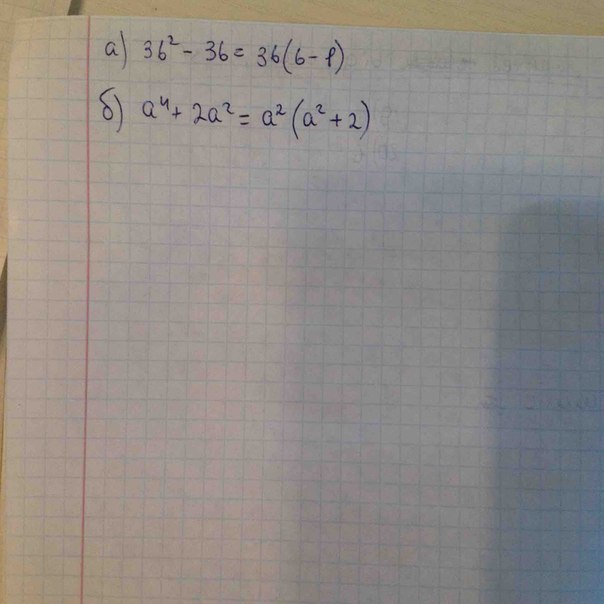 а) 3b² - 3b = 3b(b-1)
б) a⁴ + 2a² = a²(a² + 2)